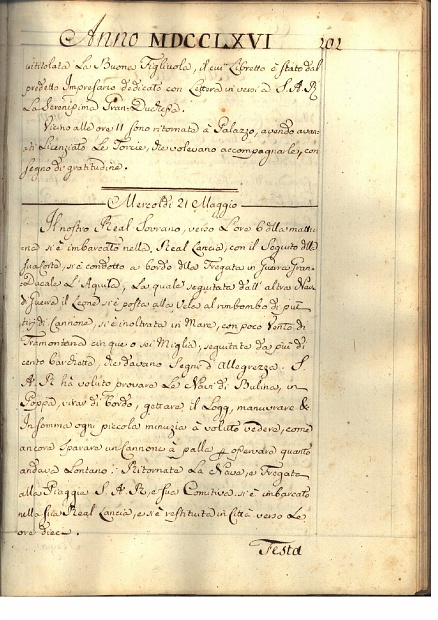 Anno MDCCLXVI 202
titolata La Buona Figliuola, il cui Libretto è stato dal
predetto Impresario dedicato con Lettera in versi a S. A. R
La Serenissima Gran-Duchessa.
Vicino alle ore 11 sono ritornate à Palazzo, avendo avan-
ti Licenziato Le Torcie, che volevano accompagnarle, con
segno di gratitudine.
Mercoldì 21 Maggio
Il nostro Real Sovrano, verso L'ore 6 della mattu
tina si è imbarcato nella Real Lancia, con il Seguito della
sua Corte, si è condotto a bordo della Fregata in Guerra Gran-
Ducale L'Aquila, La quale seguitata dall' altra Nave
di Guerra il Leone si è posta alla Vela al rimbombo di più
tiri di Cannone, si è inoltrata in Mare, con poco Vento di
Tramontana cinque o sei Miglia, seguitata da più di
cento barchette, che davano Segni d'Allegrezza. S.
A. R. hà voluto provare Le Navi di Bulina, in
Poppa, virar di bordo, gettare il Logg, manuvrare &
Insomma ogni piccola minuzia à voluto vedere, come
ancora sparare un Cannone à palla p osservare quanto
andava Lontano: Ritornate La Nave, e Fregata
alle Piagge S. A. R. e sua Comitiva si è imbarcato
nella sua Real Lancia, e si è restituita in Città verso Le
ore dieci.
Festa